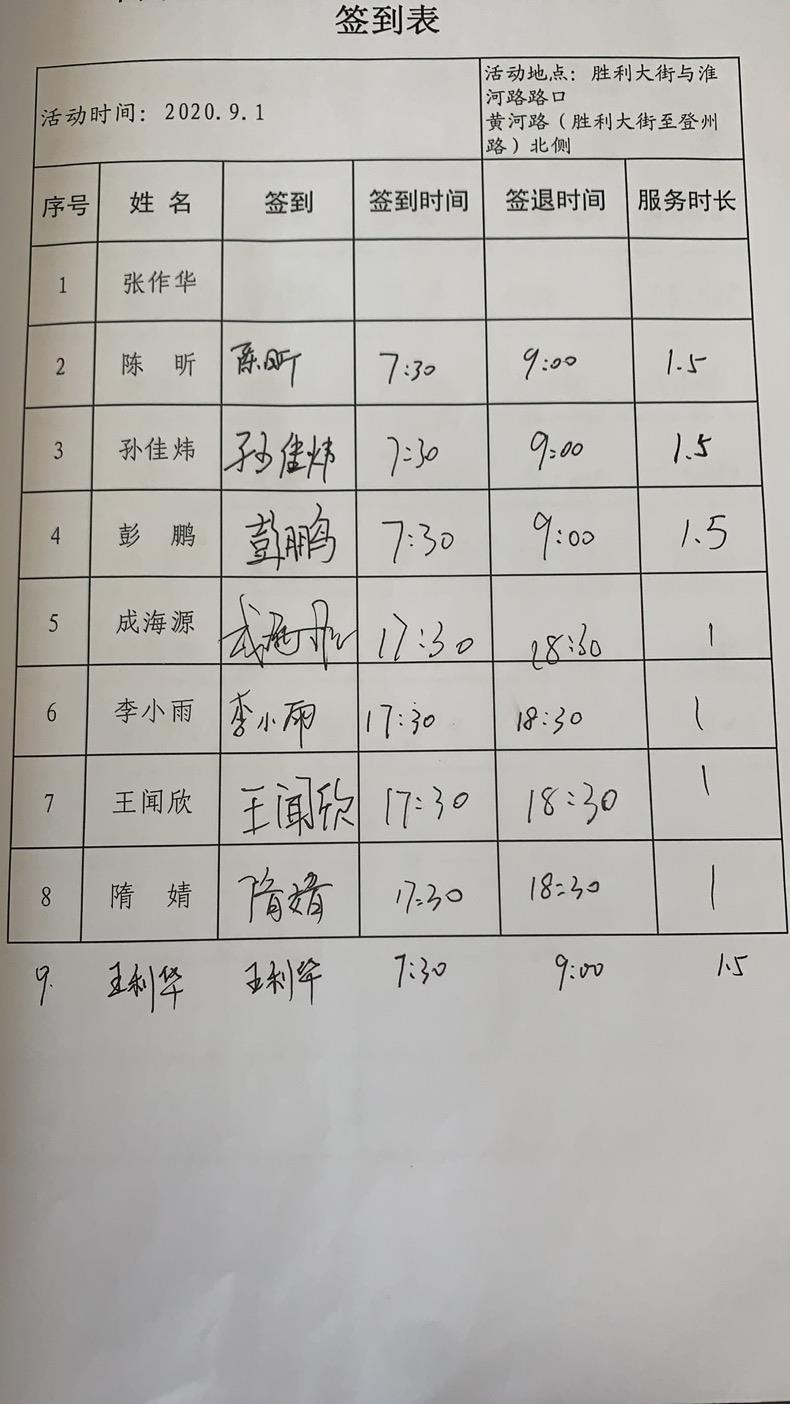 签到表
活动时间：2020.9.1
活动地点：胜利大街与淮
河路路口
黄河路（胜利大街至登州
路）北侧
序号 姓 名 签到 签到时间 签退时间 服务时长
1 张作华
2 陈 昕 陈昕 7:30 9:00 1.5
3 孙佳炜 孙佳炜 7:30 9:00 1.5
4 彭 鹏 彭鹏 7:30 9:00 1.5
5 成海源 成海源 17:30 18:30 1
6 李小雨 李小雨 17:30 18:30 1
7 王闻欣 王闻欣 17:30 18:30 1
8 隋 婧 隋婧 17:30 18:30 1
9. 王利华 王利华 7:30 9:00 1.5